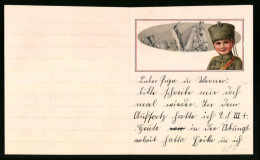 Lieber Papa u. Werner.
bitte schreibe mir doch
mal wieder. In dem
Aufsatz hatte ich 2 d III+.
Heute in der Übungs
arbeit hatte ich